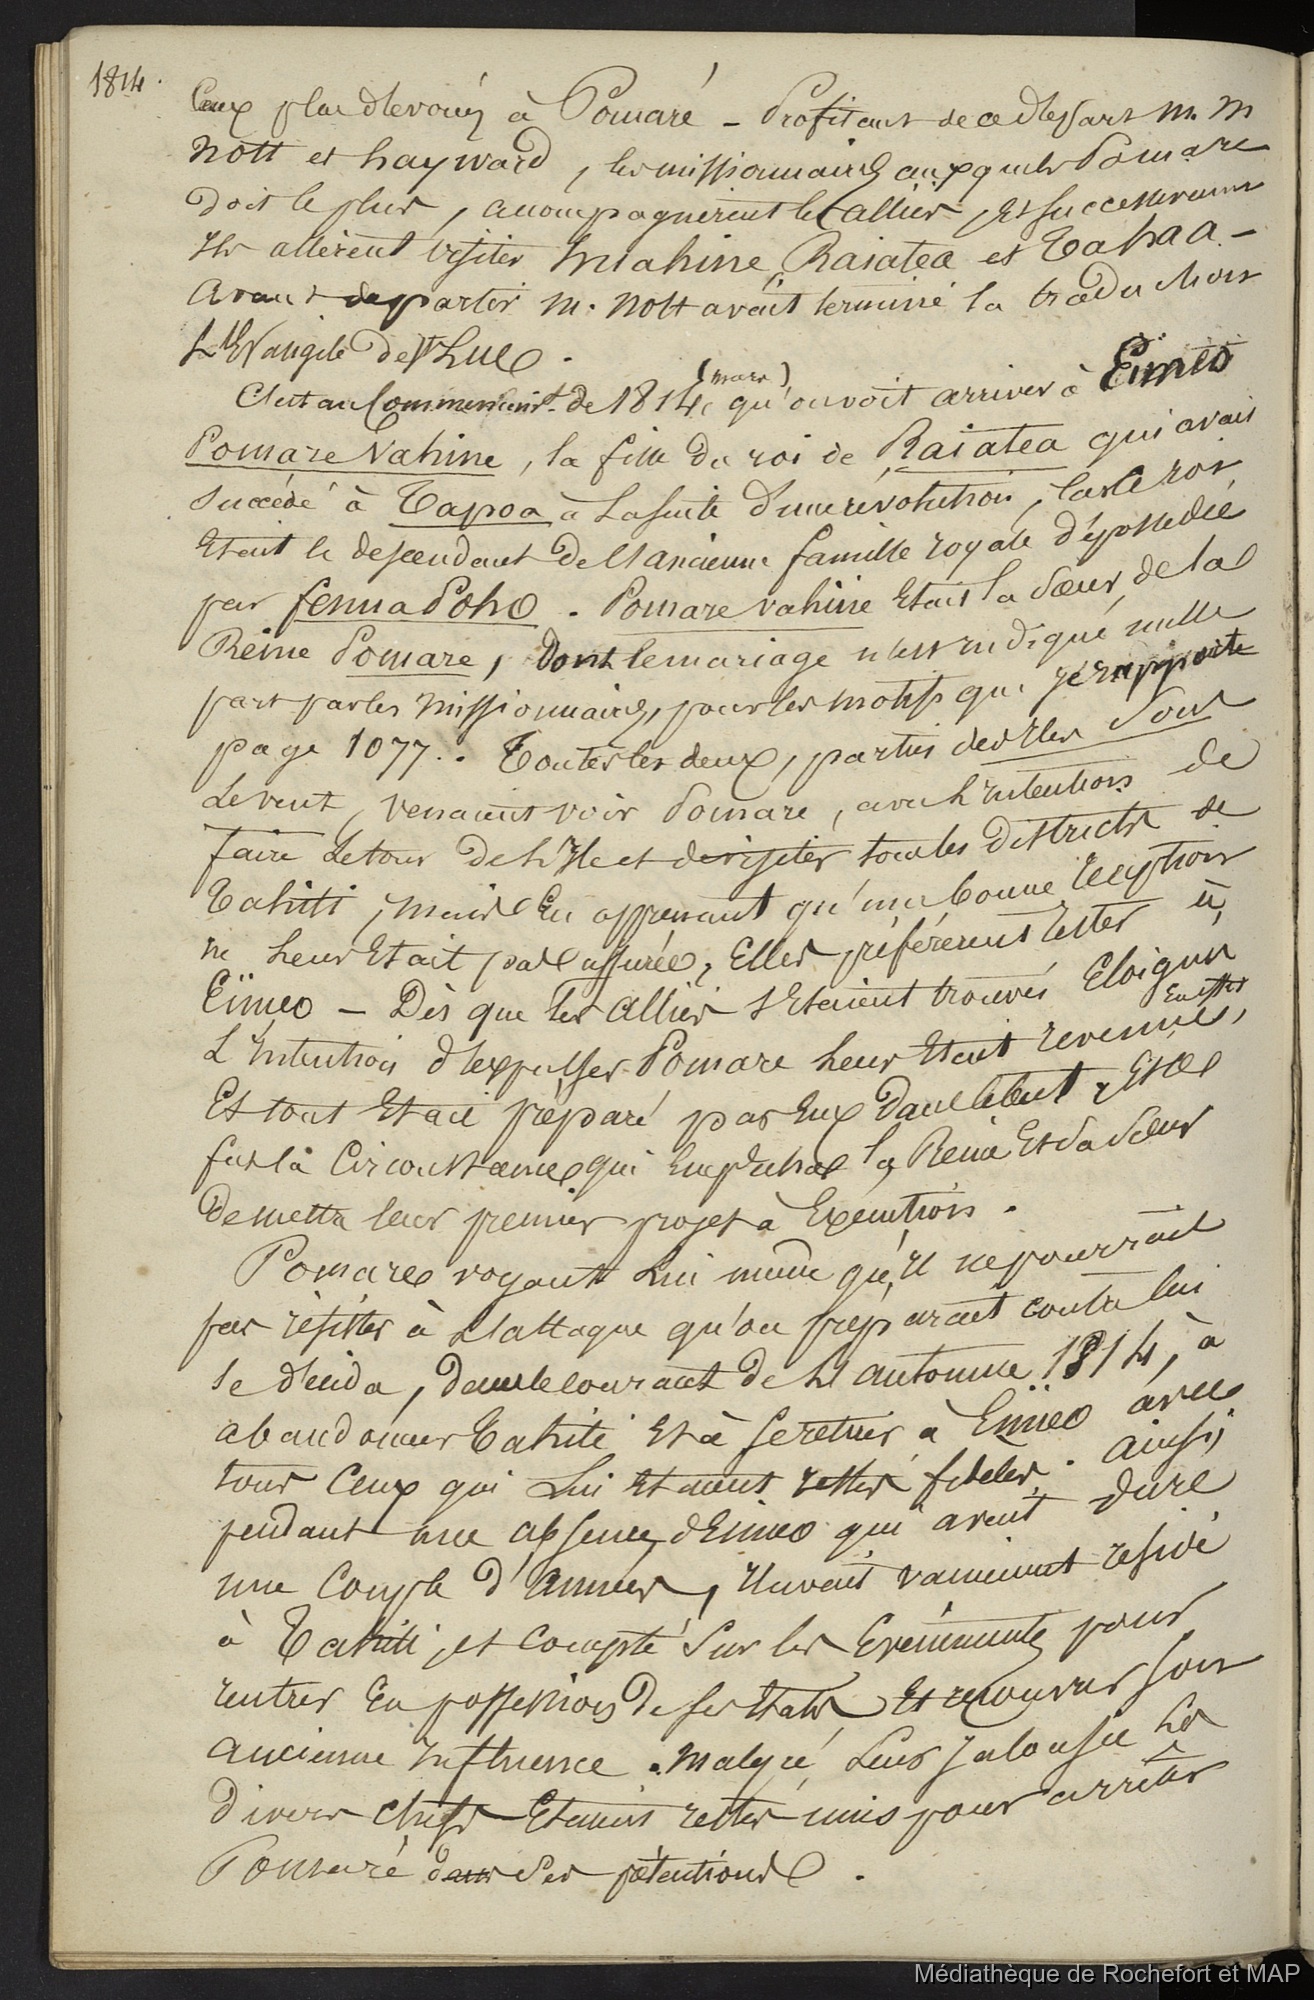 1814.
Ceux plus dévoués à Pomaré – Profitant de ce départ M. M
Nott et hayward, les missionnaires auxquels Pomare
doit le plus, accompagnèrent les alliés, et successivement
Ils allèrent visiter huahine, Raiatea et Tahaa –
avant de partir M. Nott avait terminé la traduction
L'Evangile de St Luc.
C'est au Commencemt. de 1814 (mars) qu'on voit arriver à Eïmeo
Pomare Vahine, la fille du roi de Raiatea qui avait
succédé à Tapoa à la suite d'une révolution, car ce roi
Etait le descendant de l'ancienne famille royale dépossedée
par fenua Poho. Pomare vahine Etait la soeur de la
Reine Pomare, dont le mariage n'est indiqué nulle
part par les missionnaires, pour les motifs que je rapporte
page 1077.. Toutes les deux, parties des Iles Sous
Le vent, venaient voir Pomare, avec l'intention de
faire Le tour de l'Ile et de visiter tous les districts de
Tahiti, mais En apprenant qu'une bonne réception
ne leur Etait pas assurée, Elles préférèrent rester à
Eïmeo – Dès que les alliés s'Etaient trouvés Eloignés
L'Intention d'expulser Pomare leur Etait revenue, En effet
Et tout Etait préparé par Eux dans ce but, Et ce
fut là Circonstance qui Empêcha la Reine Et sa soeur
De mettre leur premier projet à Exécution.
Pomare voyant Lui même qu'il ne pourrait
pas résister à L'attaque qu'on préparait contre lui
se décida, dans le courant de L'automne 1814, à
abandonner Tahiti Et à se retirer à Eïmeo avec
tous Ceux qui Lui Etaient restés fideles. ainsi,
pendant une absence d'Eimeo qui avait duré
une Couple d'années, Il avait vainement residé
à Tahiti, et compté sur les Evénements pour
rentrer En possession de ses Etats Et recouvrer son
ancienne Influence. Malgré Leur Jalousie les
divers chefs Etaient restés unis pour arrêter
Pomaré dans ses prétentions.
Médiathèque de Rochefort et MAP